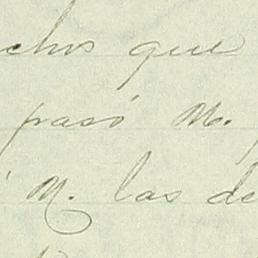 chos que
pasó M.
M. las de